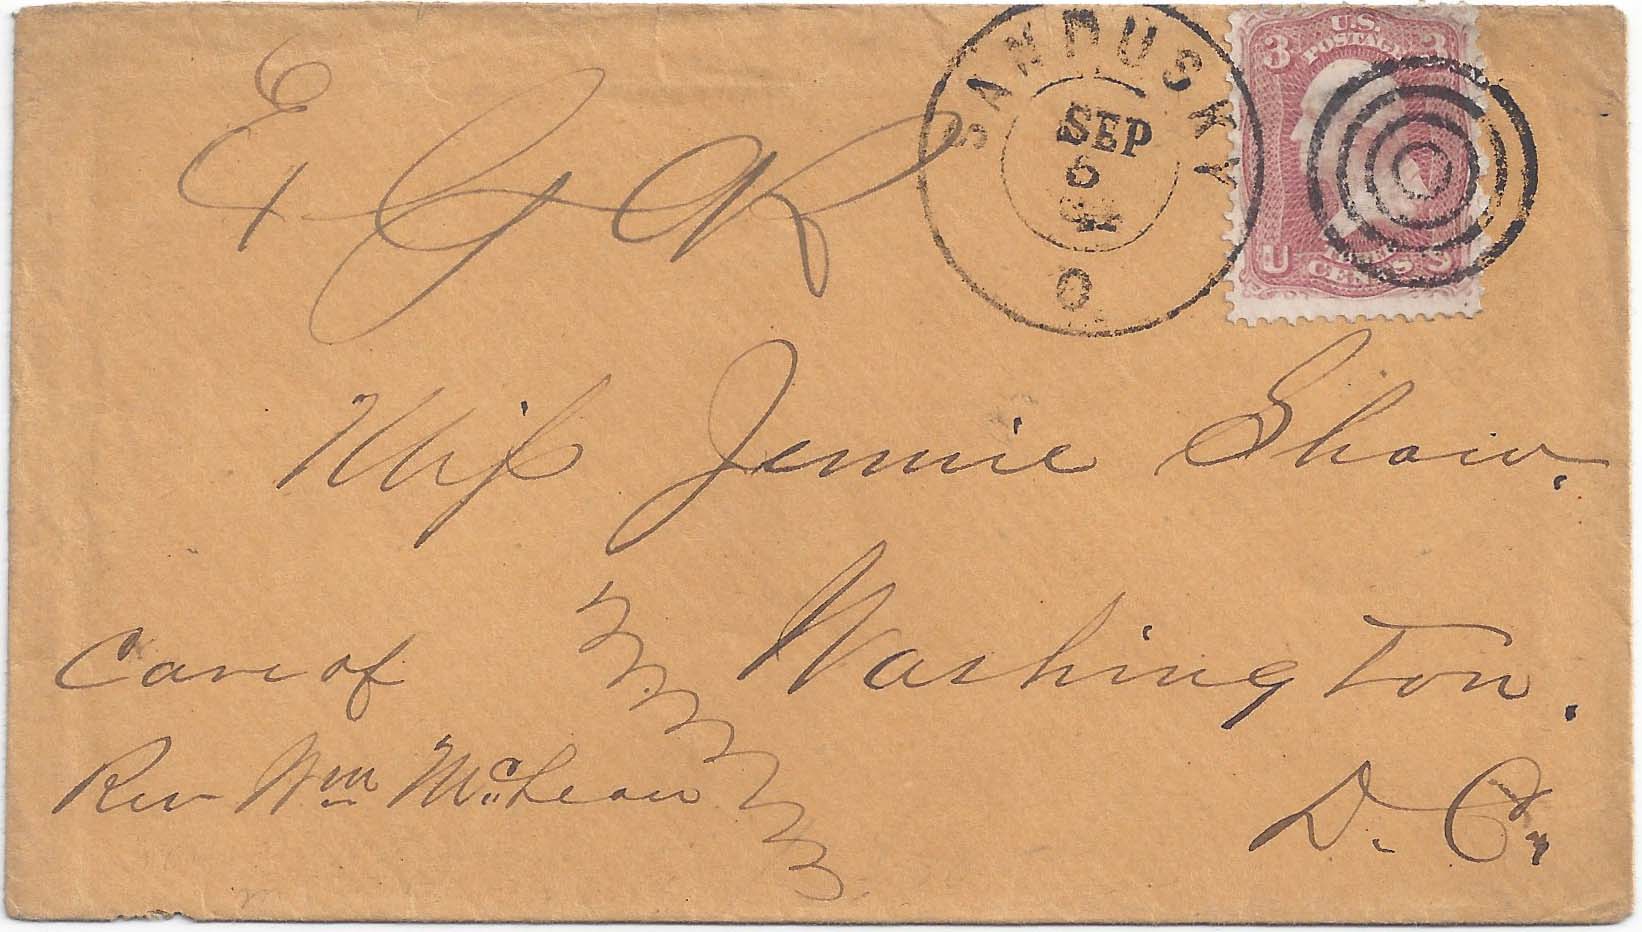 SANDUSKY
SEP
O.
U.S.
POSTAGE
3 3
U S
CENTS
Miss Jennie Shaw.
Washington.
D. C.
Care of
Rev Wm McLean